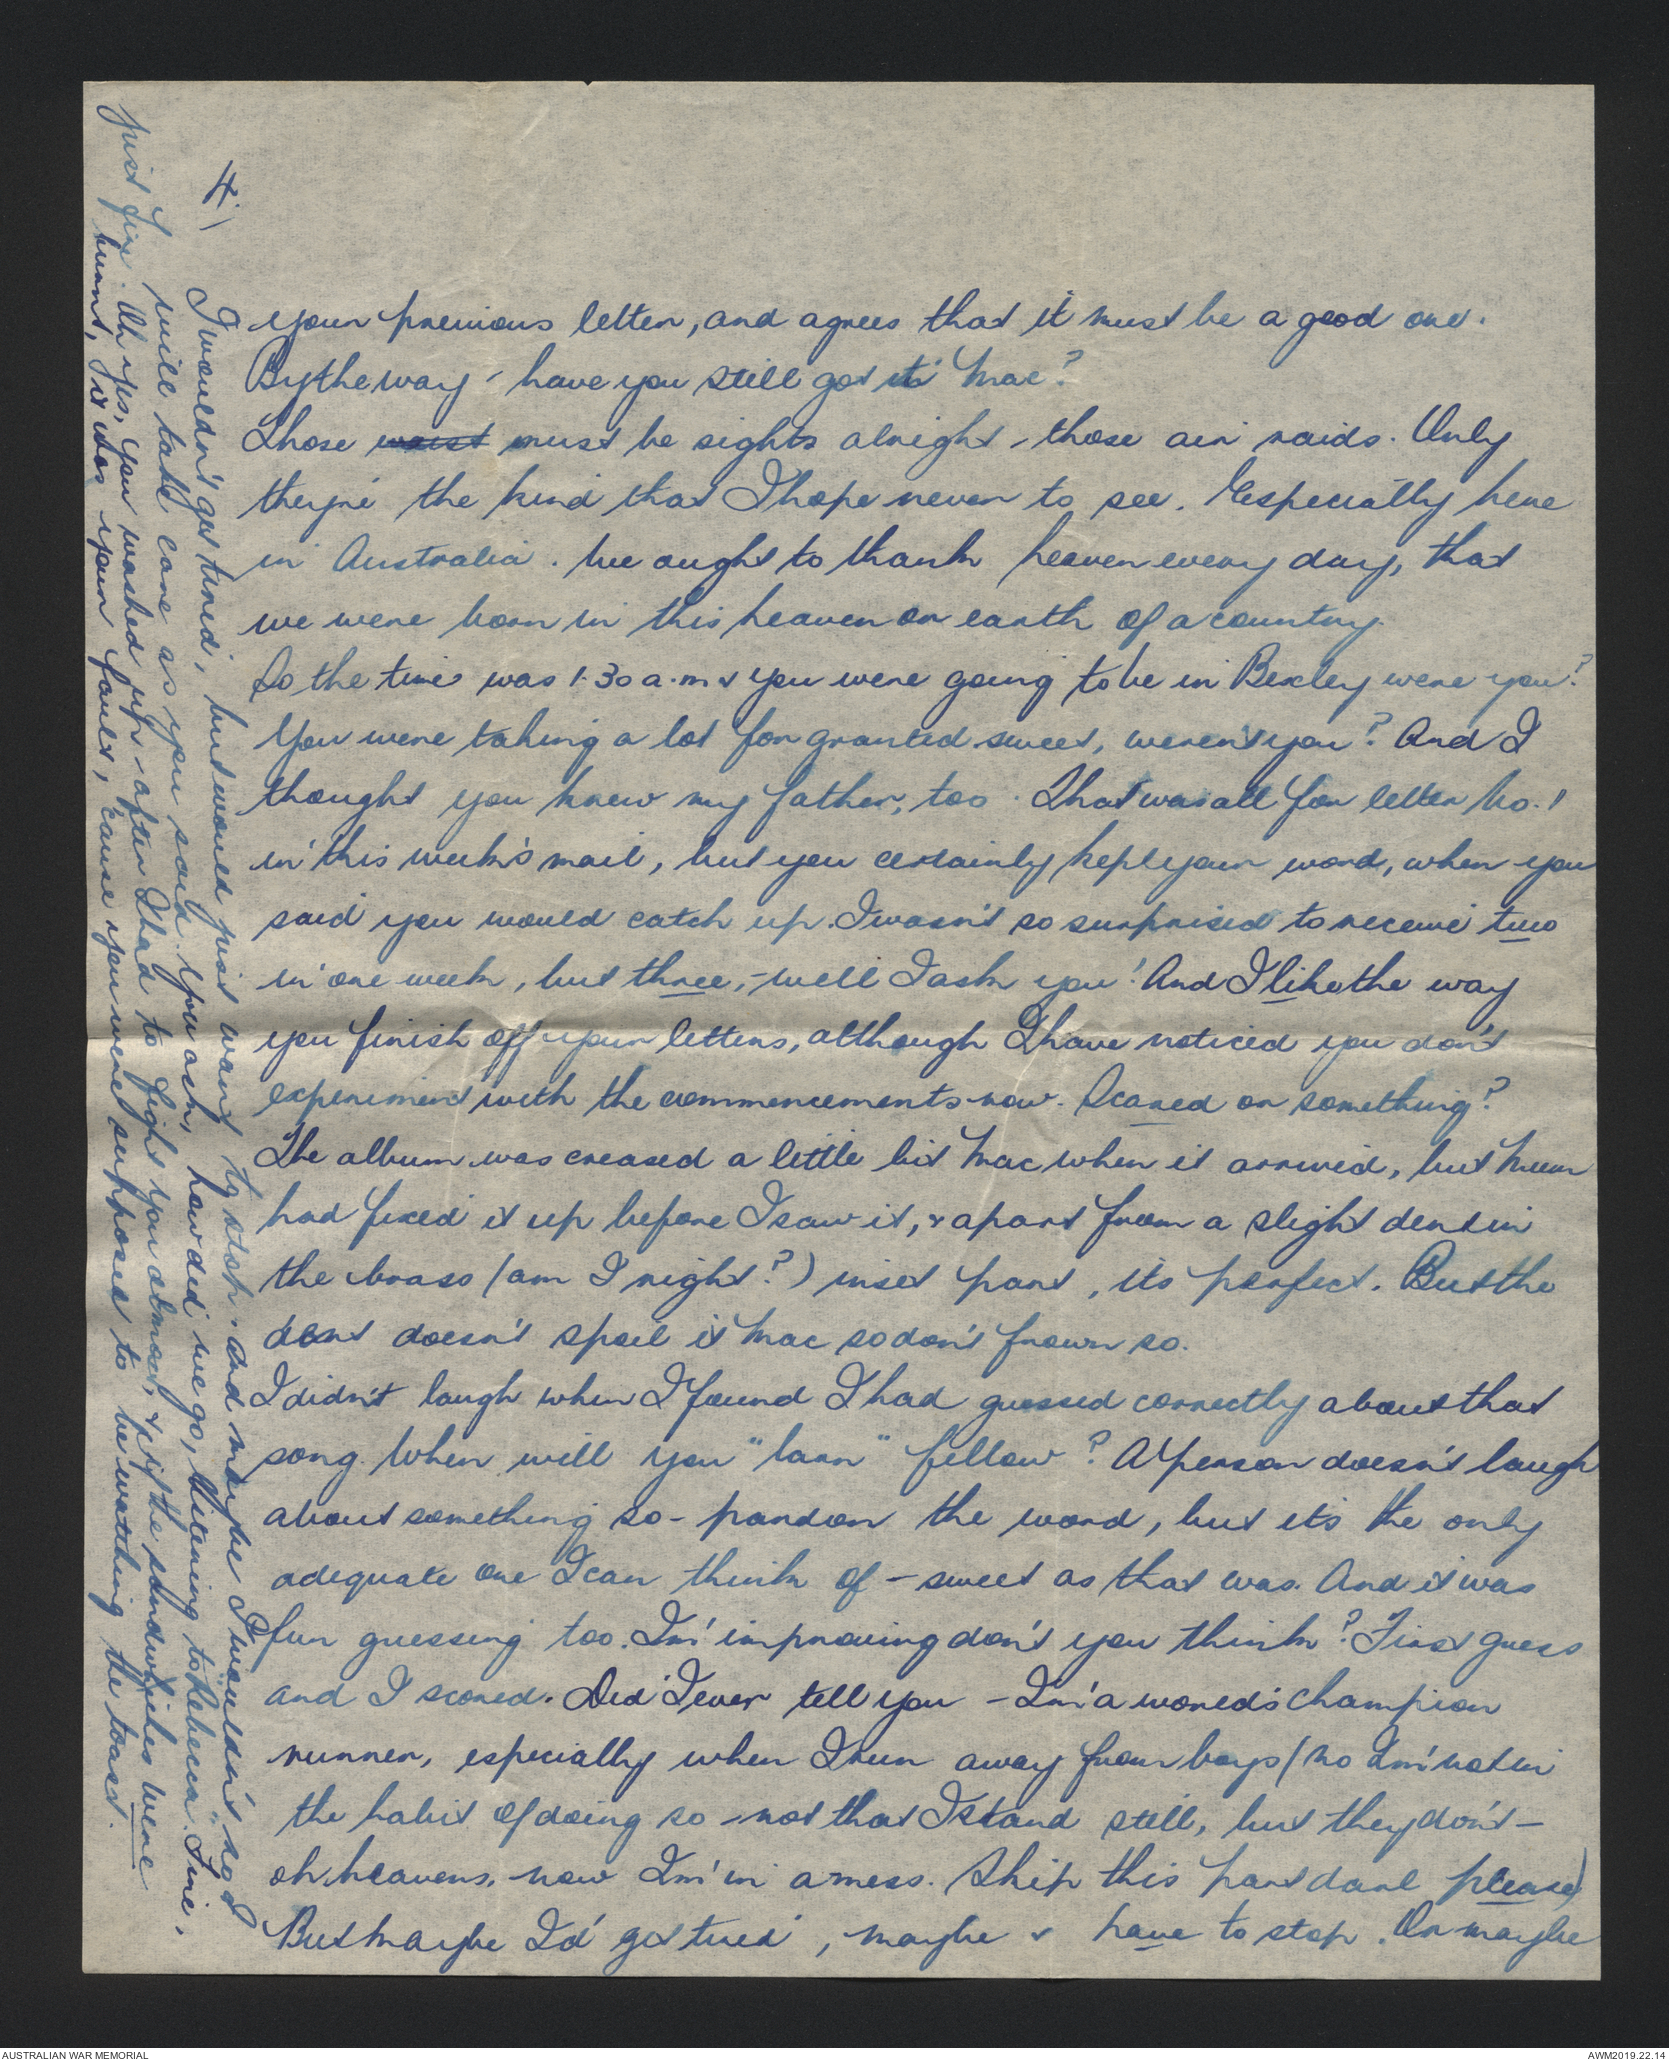 4.)
your previous letter, and agrees that it must be a good one.
By the way - have you still got it Mac?
Those waist must be sights alright - those air raids. Only
they're the kind that I hope never to see. Especially here
in Australia. We ought to thank heaven every day, that
we were born in this heaven on earth of a country.
So the time was 1.30 a.m & you were going to be in Bexley were you?
You were taking a lot for granted sweet, weren't you? And I
thought you knew my father, too. That was all for letter No. 1
in this week's mail, but you certainly kept your word, when you
said you would catch up. I wasn't so surprised to receive two
in one week, but three, - well I ask you! And I like the way
you finish off your letters, although I have noticed you don't
experiment with the commencements now. Scared or something?
The album was creased a little bit Mac when it arrived, but Mum
had fixed it up before I saw it, & apart from a slight dent in
the brass (am I right?) inset part, its perfect. But the
dent doesn't spoil it Mac so don't frown so.
I didn't laugh when I found I had guessed correctly about that
song. When will you "larn" fellow? A person doesn't laugh
about something so - pardon the word, but it's the only
adequate one I can think of - sweet as that was. And it was
fun guessing too. I'm improving don't you think? First guess
and I scored. Did I ever tell you - I'm a world's champion
runner, especially when I run away from boys (No I'm not in
the habit of doing so - not that I stand still, but they don't -
oh heavens, now I'm in a mess. Skip this part darl please)
But maybe I'd get tired, maybe & have to stop. Or maybe
I wouldn't get tired, but would just want to stop. And maybe I wouldn't. So I
will take care as you said. You ask, how did we go, listening to "Rebecca". Fine,
just fine. Oh yes, you washed up - after I had to fight you almost, & if the sandwiches were
burnt, it was your fault, 'cause you were supposed to be watching the toast.